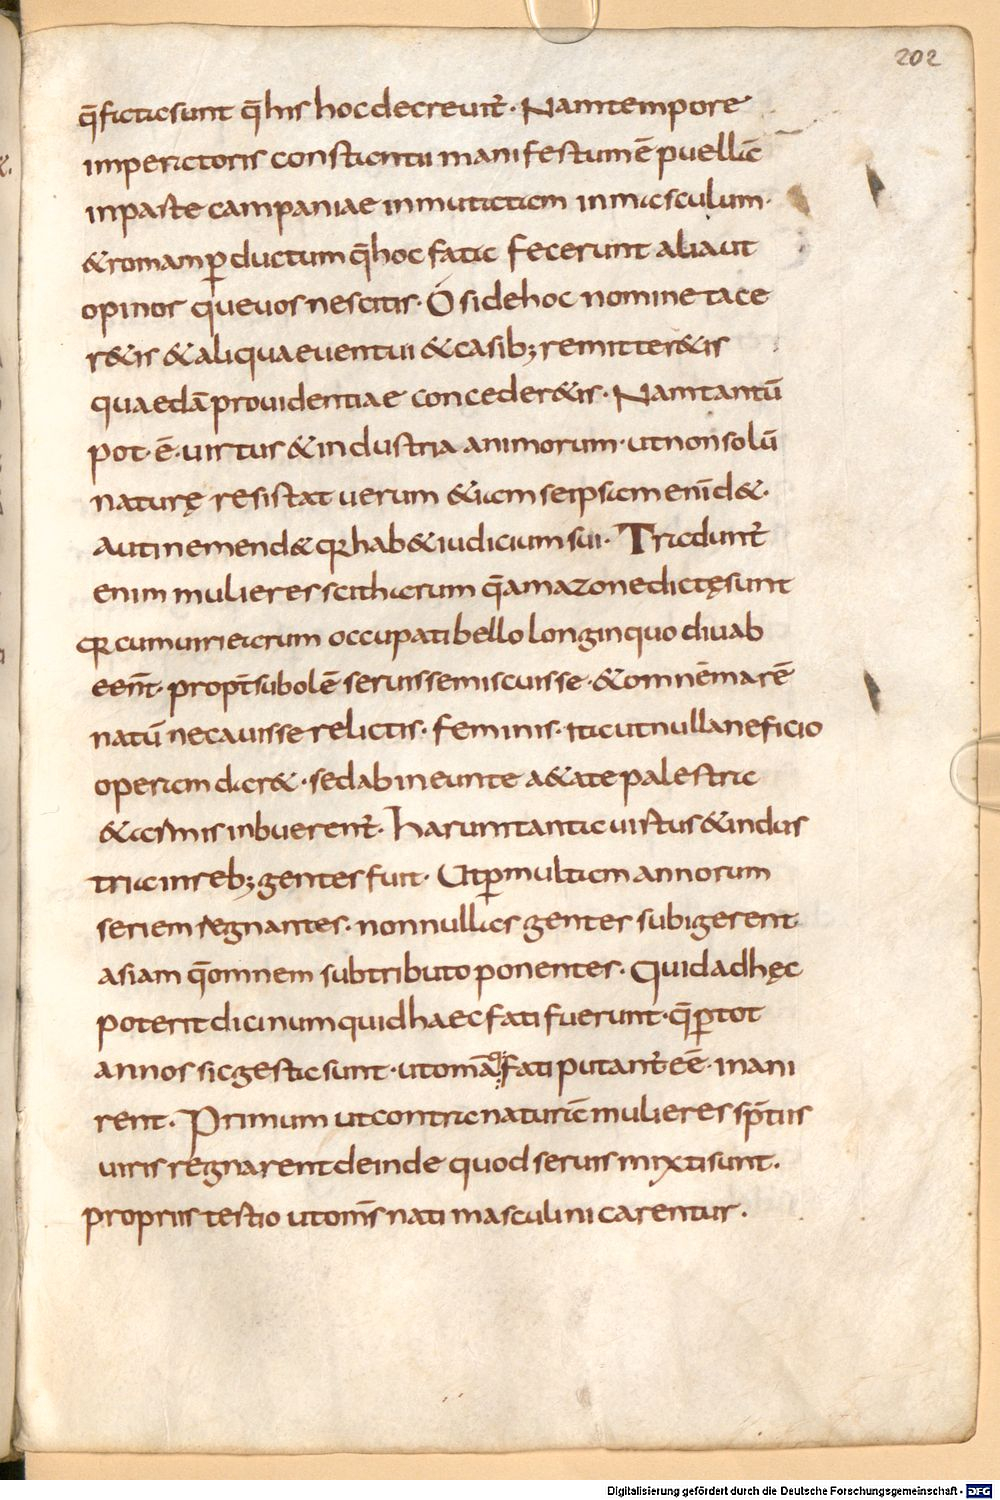 202
q̄ facta sunt q̄ his hoc decreuit̄. Nam tempore
imperatoris constantii manifestum ē puellā
in parte campaniae in mutatam in masculum.
& romam ꝑductum q̄ hoc fata fecerunt alia ut
opinor que uos nescitis. O si de hoc nomine tace
r&is & aliqua euentui & casib; remitter&is
quaedā prouidentiae conceder&is. Nam tantū
pot. ē. uirtus & industria animorum. ut non solū
naturę resistat uerum &iam se ipsam emēd&.
aut in emend& qr hab& iudicium sui. Tradunt̄
enim mulieres scithiarum q̄ amazone dictę sunt
qr cum uiri earum occupati bello longinquo diu ab
eēnt̄. propt̄ subolē seruis se miscuisse. & omnēmarē
natū necauisse relictis. feminis. ita ut nulla neficio
operam dar&. sed ab ineunte a&ate palestra
& armis inbuerent̄. harum tanta uirtus & indus
tria in reb; gentes fuit. Ut ꝑ multam annorum
seriem regnantes. non nullas gentes subigerent
asiam q̄ omnem sub tributo ponentes. Quid ad hęc
poterit dici num quid haec fati fuerunt. q̄ ꝑ tot
annos sic gesta sunt. ut omā fati putant̄ eē. inani
rent. Primum ut contra naturā mulieres sp̄tiis
uiris regnarent deinde quod seruis mixti sunt.
propriis testio ut om̄s nati masculini carentur.
Digitalisierung gefördert durch die Deutsche Forschungsgemeinschaft - DFG